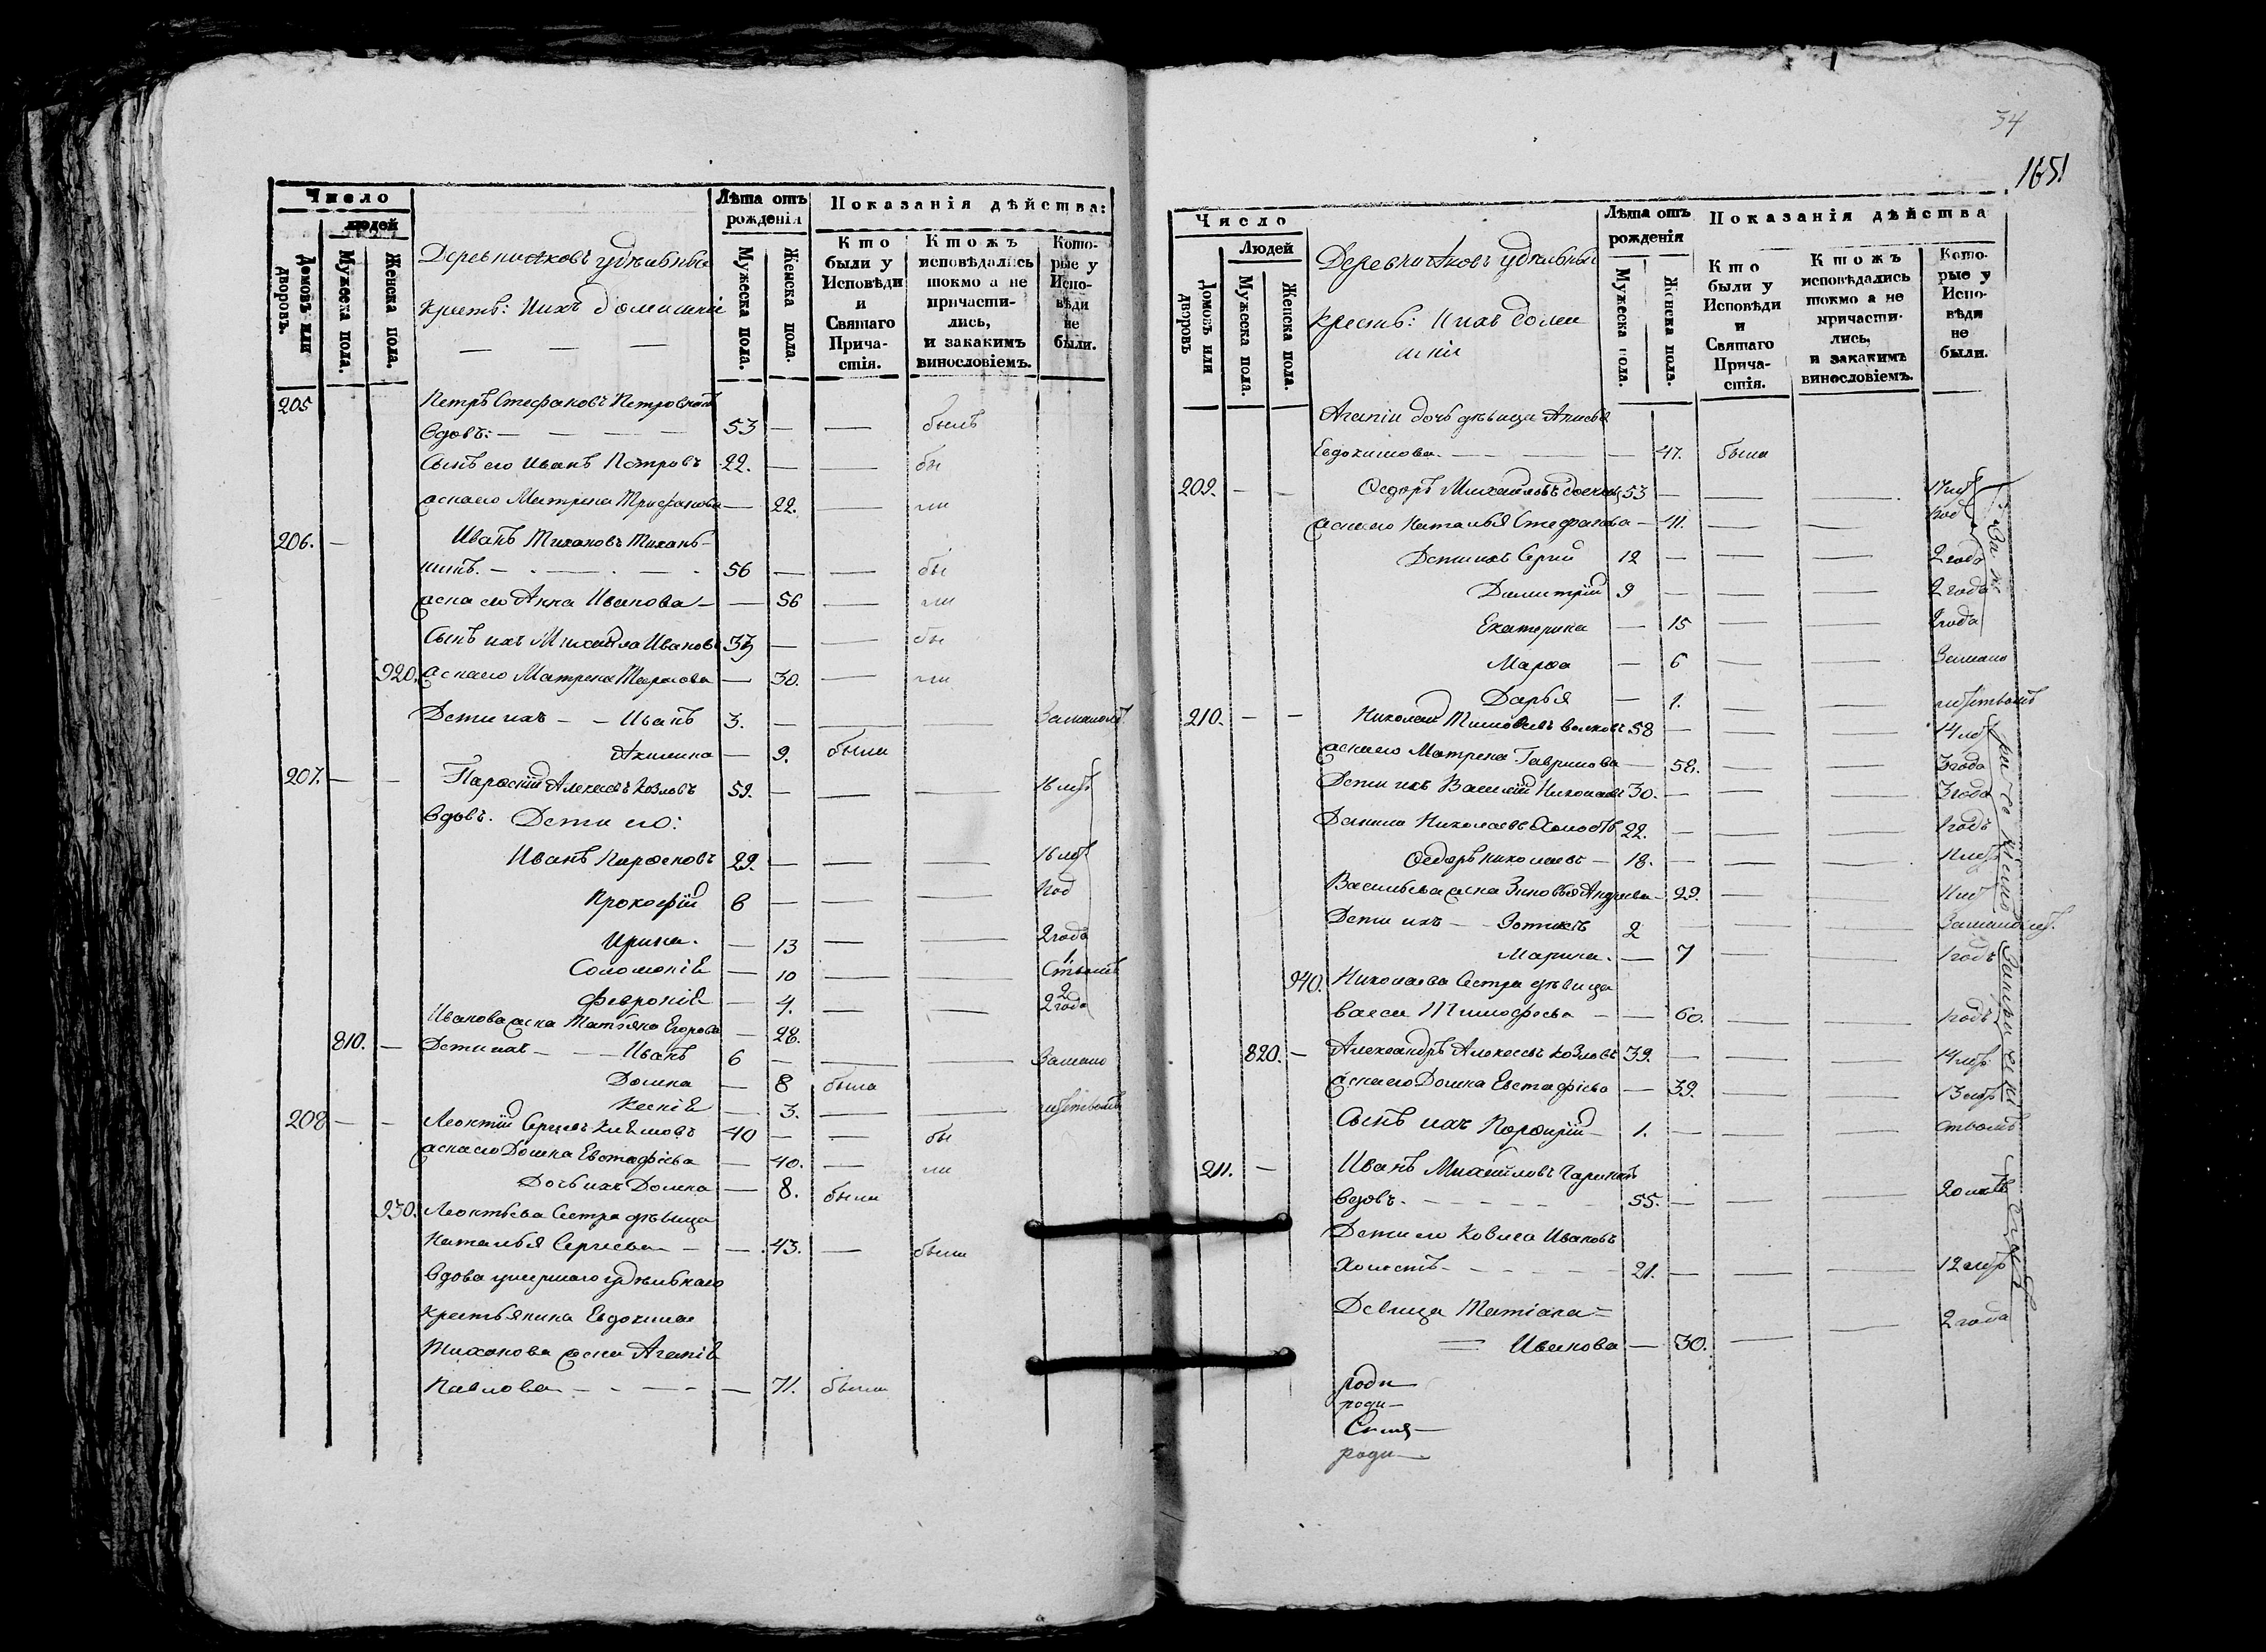 Число
людей
Домовъ или дворовъ.
Мужеска пола.
Женска пола.
крест: и ихъ домашнiе
Лѣта отъ рожденiя
Мужеска пола.
Женска пола.
Показанiя дѣйства:
Кто были у Исповѣди и Святаго Причастiя.
Ктожъ исповѣдались токмо а не причастились, и закакимъ винословiемъ.
Которые у Исповѣди не были.
205 Петръ Стефановъ
вдовъ: — 53 — — былъ
Сынъ его Иванъ Петровъ 22. — — бы
жена его Матрена Трифонова — 22. — ли
206. — Иванъ Тихановъ Тихань-
шинъ. — 56 — — бы
жена его Анна Иванова — — 56 — ли
Сынъ ихъ Михайла Ивановъ — — бы
920. жена его Матрена — 30. — ли
Дети ихъ — — Иванъ 3. — — —
Акилина — 9. была
207. — — Алексеевъ Козловъ 59. — — — 16 лѣтъ
вдовъ. Дети его:
Иванъ 29. — — — 16 лѣтъ
Прокофiй 6 — — — 1 год
Ирина. — 13 — — 2 года
Соломонiя — 10 — —
Февронiя — 4. — — 2 года
Иванова жена Татьяна Егорова — 28.
810. — Дети ихъ — — Иванъ 6 — — — За мало
Домна — 8 была
Ксенiя — 3. — — лѣтствомъ
208 — — Леонтiй Сергеевъ 40 — — бы
жена его Домна Евстафiева — 40. — ли
Дочь ихъ Домна — 8. была
930. Леонтьева Сестра дѣвица
Наталья Сергiева — — 43. — была
Вдова умершаго удѣльнаго
крестьянина Евдокима
Тиханова жена Агапiя
Павлова — — — 71. была
34
165
Число
Людей
Домовъ или дворовъ
Мужеска пола.
Женска пола.
крестъ: и ихъ дома
шнiи
Лѣта отъ рожденiя
Мужеска пола.
Женска пола.
Показанiя дѣйства
Кто были у Исповѣди и Святаго Причастiя.
Ктожъ исповѣдались токмо а не причастились, и закакимъ винословiемъ.
Которые у Исповѣди не были.
Агапiи дочь дѣвица
Евдокимова — — — 47. была
209. — — Ѳедоръ Михайловъ 53 — — — 17 лѣтъ
жена его Наталья Стефанова — 41. — — 1 год
Дети ихъ Сергiй 12 — — — 2 года
Димитрiй 9 — — — 2 года
Екатерина — 15 — — 2 года
Марѳа — 6 — — За мало
Дарья — 1. — — лѣтствомъ
210. — — Николай Тимофеевъ Волковъ 58 — — — 14 лѣтъ
жена его Матрена Гаврилова — 58. — — 3 года
Дети ихъ Василiй Николаевъ 30. — — — 3 года
Данила Николаевъ Холостъ 22. — — — 1 годъ
Ѳедоръ Николаевъ — 18. — — —
Васильева жена Зиновья Андреева — 29. — —
Дети ихъ — — 2 — — —
Марина. — 7 — — 1 годъ
940. Николаева Сестра дѣвица
Васса Тимофеева — — 60. — — 1 годъ
820. — Александръ Алексеевъ Козловъ 39. — — — 14 лѣтъ
жена его Домна Евстафiева — 39. — — 13 лѣтъ
Сынъ ихъ Порфирiй — 1. — — — ствомъ
211. — Иванъ Михайловъ
вдовъ. — 55. — — — 20 лѣтъ
Дети его Ивановъ
Холостъ — 21. — — — 12 лѣтъ
Девица Татiана =
= Иванова — 30. — — 2 года
роди —
роди —
роди —